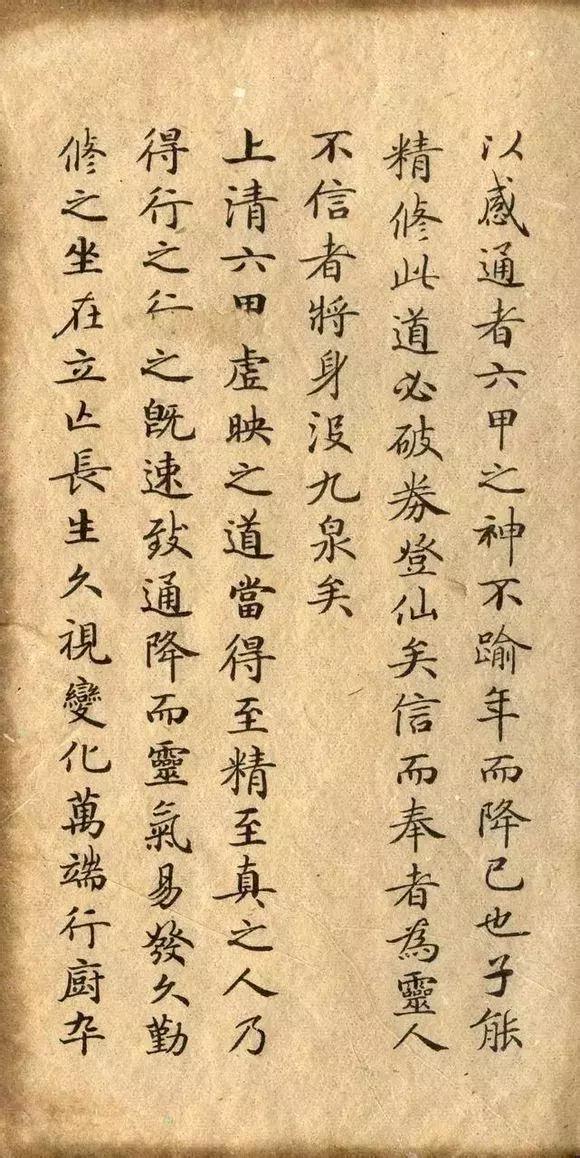 以感通者六甲之神不踰年而降已也子能
精修此道必破券登仙矣信而奉者為靈人
不信者將身沒九泉矣
上清六甲虛映之道當得至精至真之人乃
得行之行之既速致通降而靈氣易發久勤
修之坐在立亾長生久視變化萬端行廚卒